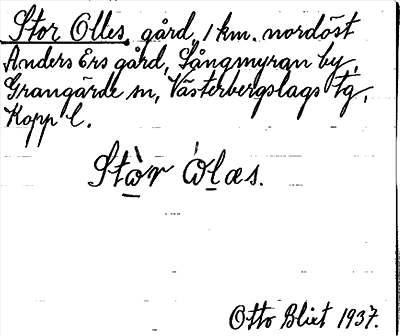 Stor Olles, gård, 1 km. nordöst
Anders Ers gård, Sångmyran by,
Grangärde sn, Västerbergslags tg,
Kopp l.
Stòr ólæs.
Otto Blixt 1937.